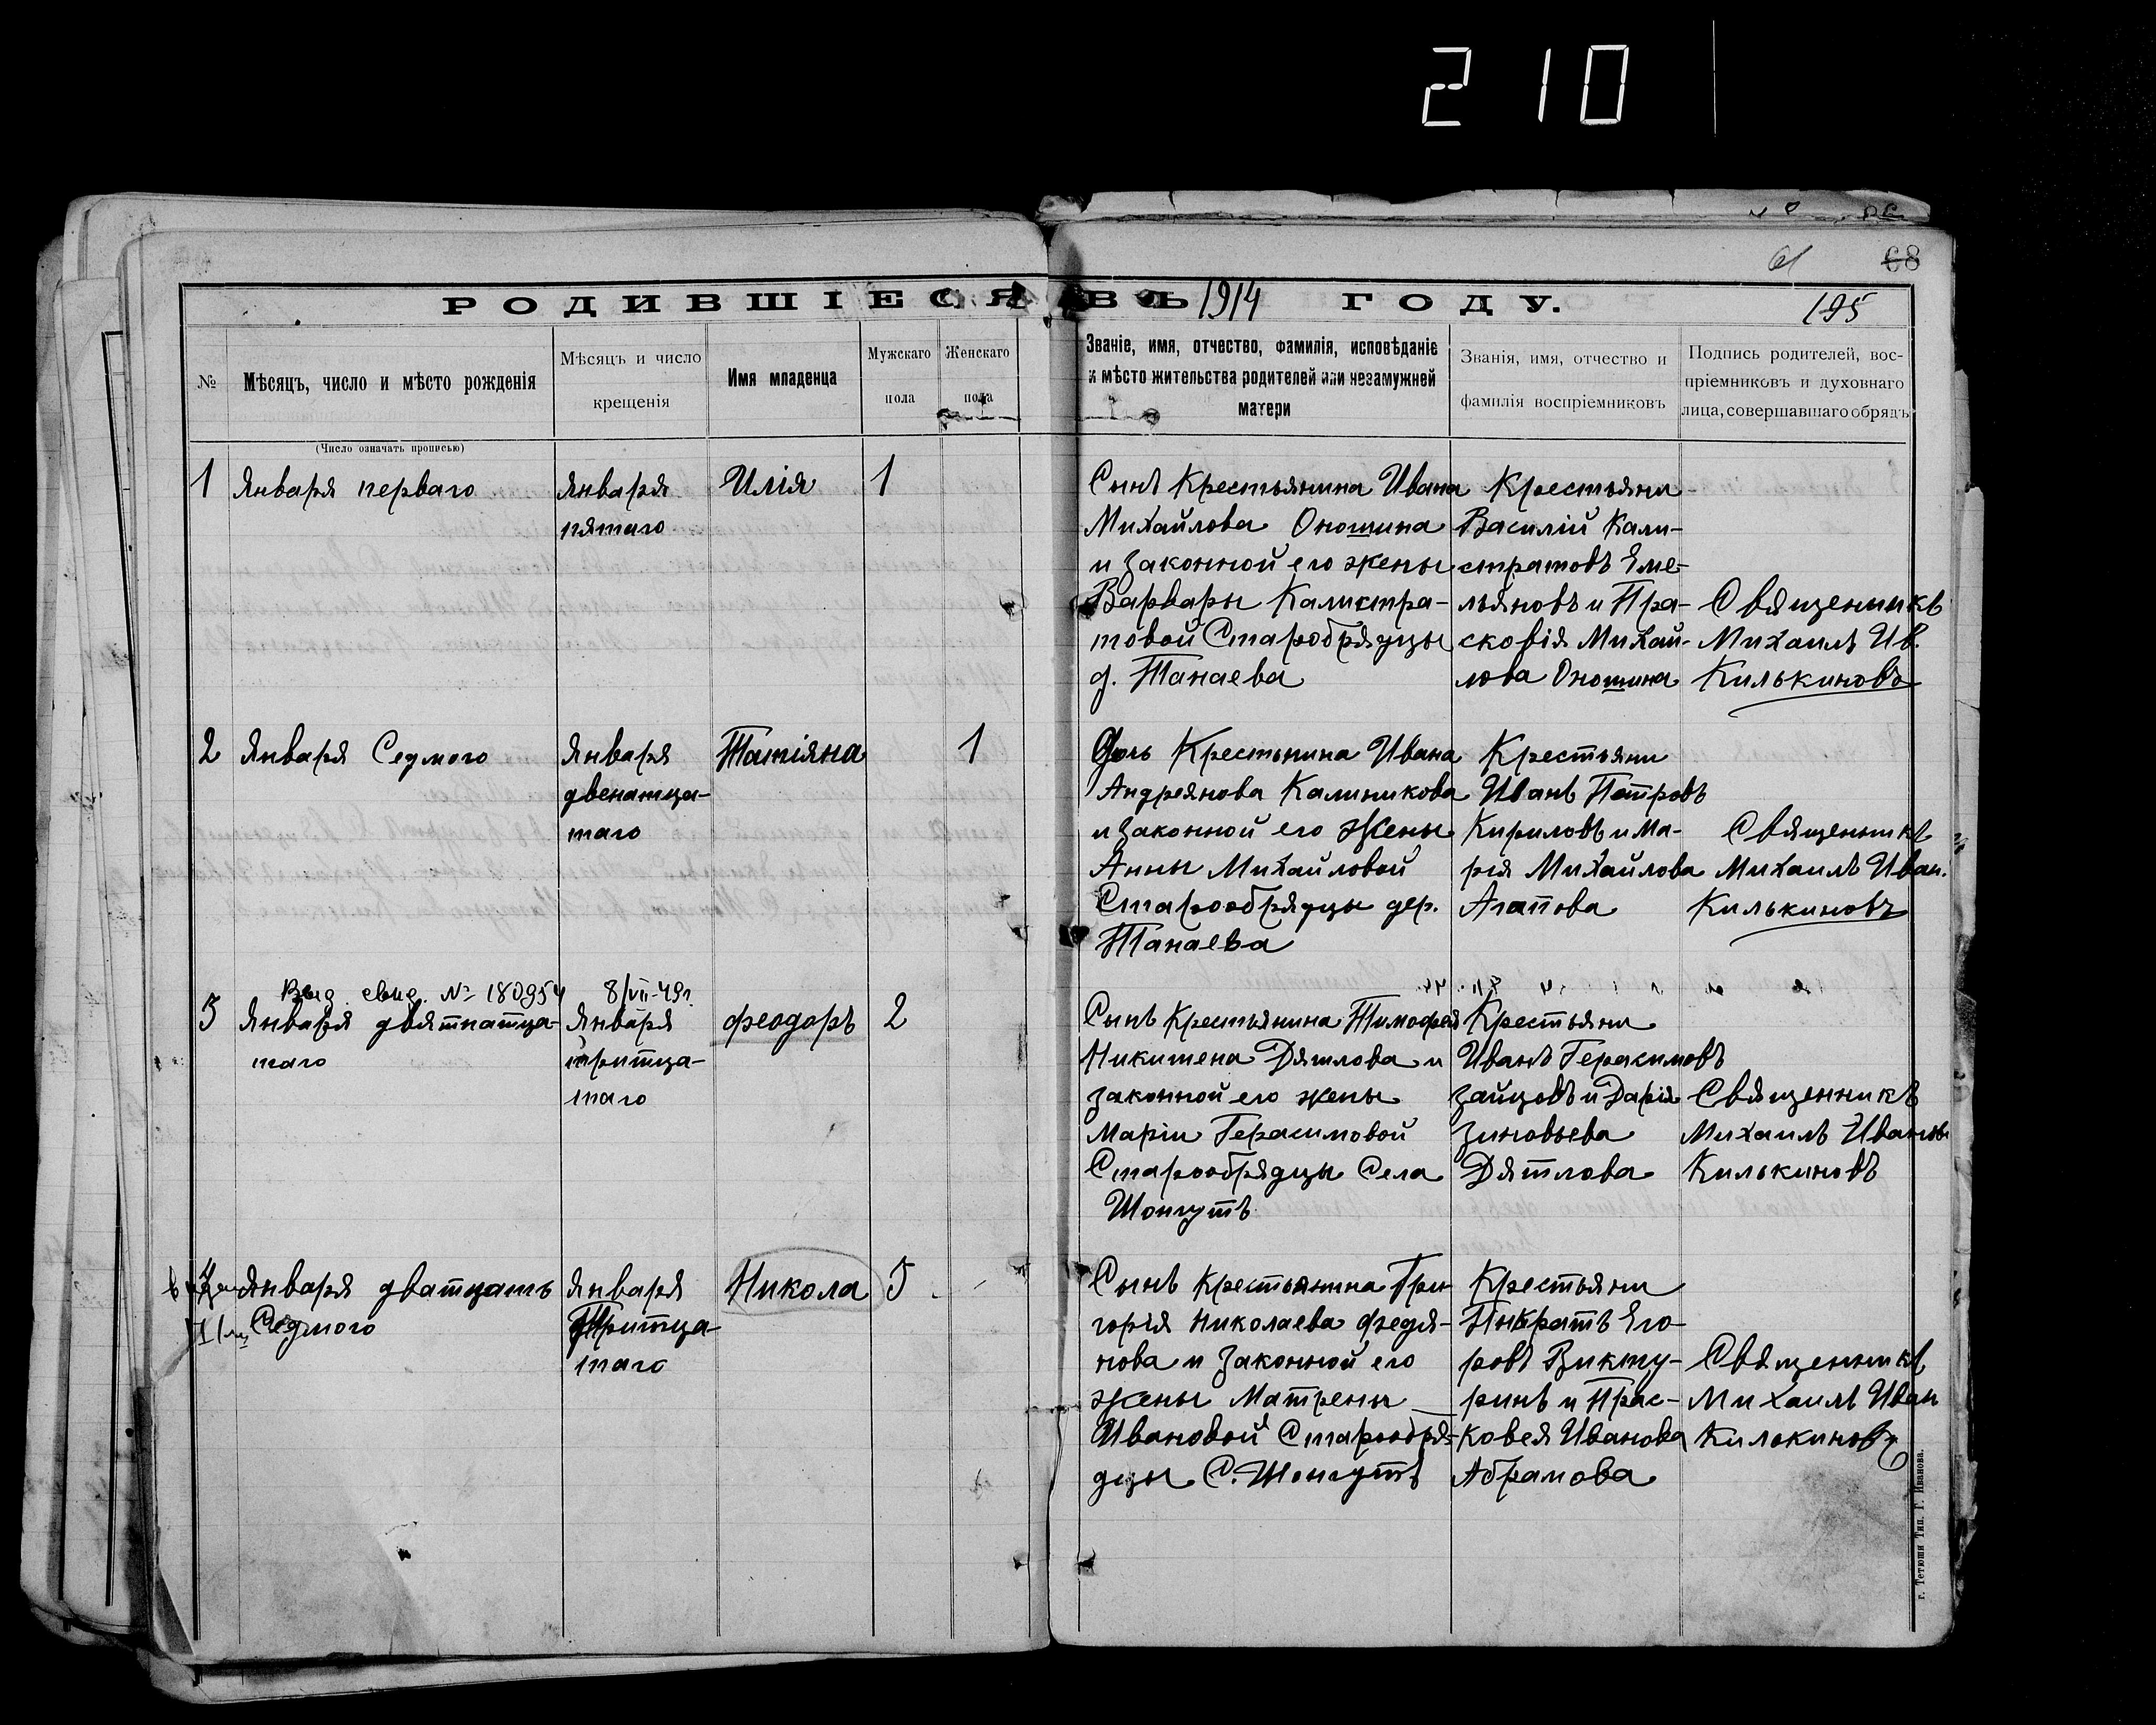 210
61
68
РОДИВШІЕСЯ ВЪ 1914 ГОДУ.
195
№
Мѣсяцъ, число и мѣсто рожденія
Мѣсяцъ и число
крещенія
Имя младенца
Мужскаго
пола
Женскаго
пола
Званіе, имя, отчество, фамилія, исповѣданіе
и мѣсто жительства родителей или незамужней
матери
Званія, имя, отчество и
фамилія воспріемниковъ
Подпись родителей, вос-
пріемниковъ и духовнаго
лица, совершавшаго обрядъ
(Число означать прописью)
1
Января перваго
Января
пятаго
Илія
1
Сынъ Крестьянина Ивана
Михайлова Оношина
и законной его жены
Варвары Калистра-
товой Старобрядцы
д. Танаева
Крестьяни
Василій Кали-
стратовъ Еме-
льяновъ и Пра-
сковія Михай-
лова Оношина
Священникъ
Михаилъ Ив.
Килькиновъ
2
Января Седмого
Января
двенатца-
таго
Татіяна
1
Дочь Крестьнина Ивана
Андреянова Калиникова
и законной его Жены
Анны Михайловой
Старообрядцы дер.
Танаева
Крестьяни
Иванъ Петровъ
Кириловъ и Ма-
рія Михайлова
Агапова
Священникъ
Михаилъ Иван.
Килькиновъ
Выд. свид. № 180954 8/VII-49г.
3
Января двятнатца-
таго
Января
тритца-
таго
Феодоръ
2
Сынъ Крестьянина Тимофея
Никитена Дятлова и
законной его жены
Маріи Герасимовой
Старообрядцы Села
Шонгутъ
Крестьяни
Иванъ Герасимовъ
Зайцовъ и Дарія
Зиновьева
Дятлова
Священникъ
Михаилъ Ивановъ
Килькиновъ
Января дватцать
Седмого
Января
Тритца-
таго
Никола
3
Сынъ Крестьянина Гри-
горія Николаева Федя-
нова и Законной его
жены Матрены
Ивановой Старообря-
дцы С. Шонгутъ
Крестьяни
Панкратъ Его-
ровъ Викту-
ринъ и Прас-
ковея Иванова
Абрамова
Священникъ
Михаилъ Иван
Килькиновъ
г. Тетюши Тип. Г. Иванова.